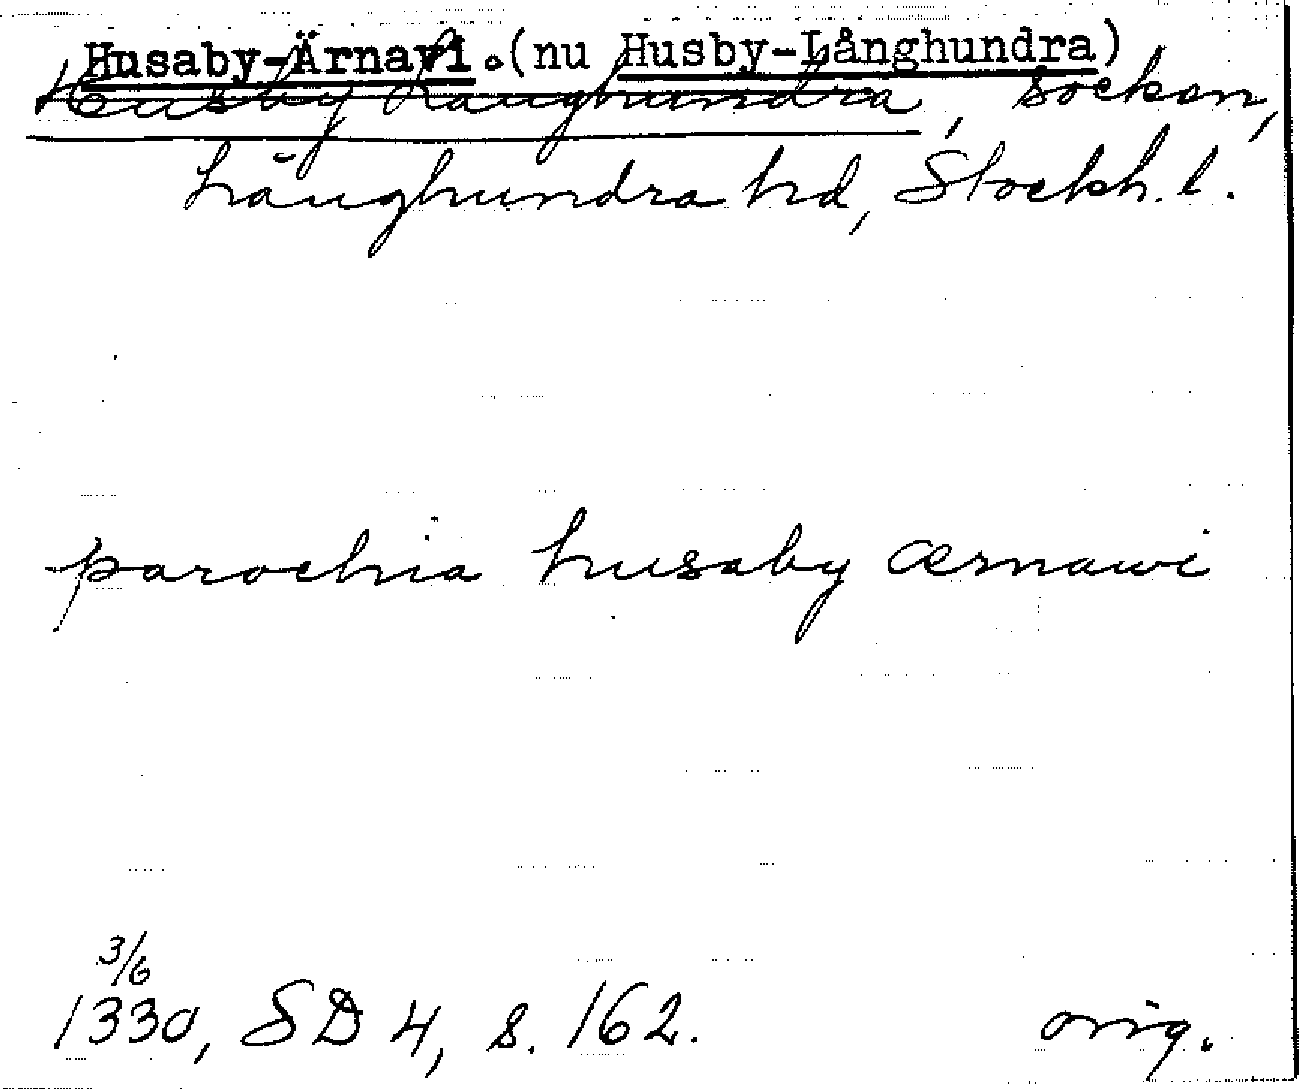 Husaby-Ärnavi. (nu Husby-Långhundra)
Husby Långhundra, socken,
Långhundra hd, Stockh. l.
parochia husaby ærnawi
3/6
1330, SD 4, s. 162. orig.